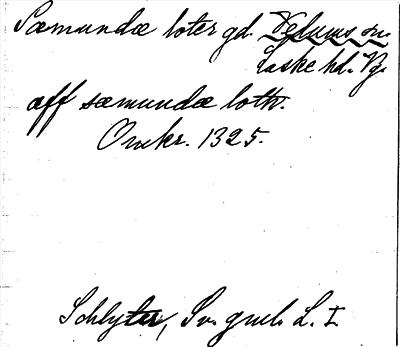 Sæmundæ loter gd. Velums sn.
Laske hd. Vg.
aff sæmundæ loth.
Omkr. 1325.
Schlyter, Sv. gml. L. I